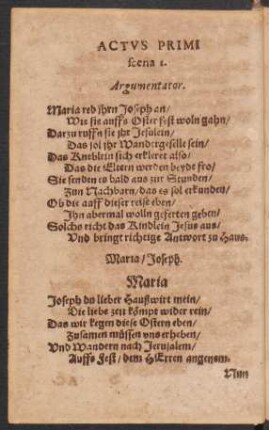 ACTVS PRIMI
scena 1.
Argumentator.
Maria red jhrn Joseph an/
Wie sie auffs Oster fest woln gahn/
Darzu ruffn sie jhr Jesulein/
Das sol jhr Wandergeselle sein/
Das Kneblein sich erkleret also/
Das die Eltern werden beyde fro/
Sie senden es bald aus zur Stunden/
Zun Nachbarn/das es sol erkunden/
Ob die auff dieser reise eben/
Jhn abermal wolln geferten geben/
Solchs richt das Kindlein Jesus aus/
Vnd bringt richtige Antwort zu Haus.
Maria/Joseph.
Maria
Joseph du lieber Haußwirt mein/
Die liebe zeit kömpt wider rein/
Das wir kegen diese Ostern eben/
Zusamen müssen vns erheben/
Vnd Wandern nach Jeruzalem/
Auffs Fest/dem HErren angenem.
Nun